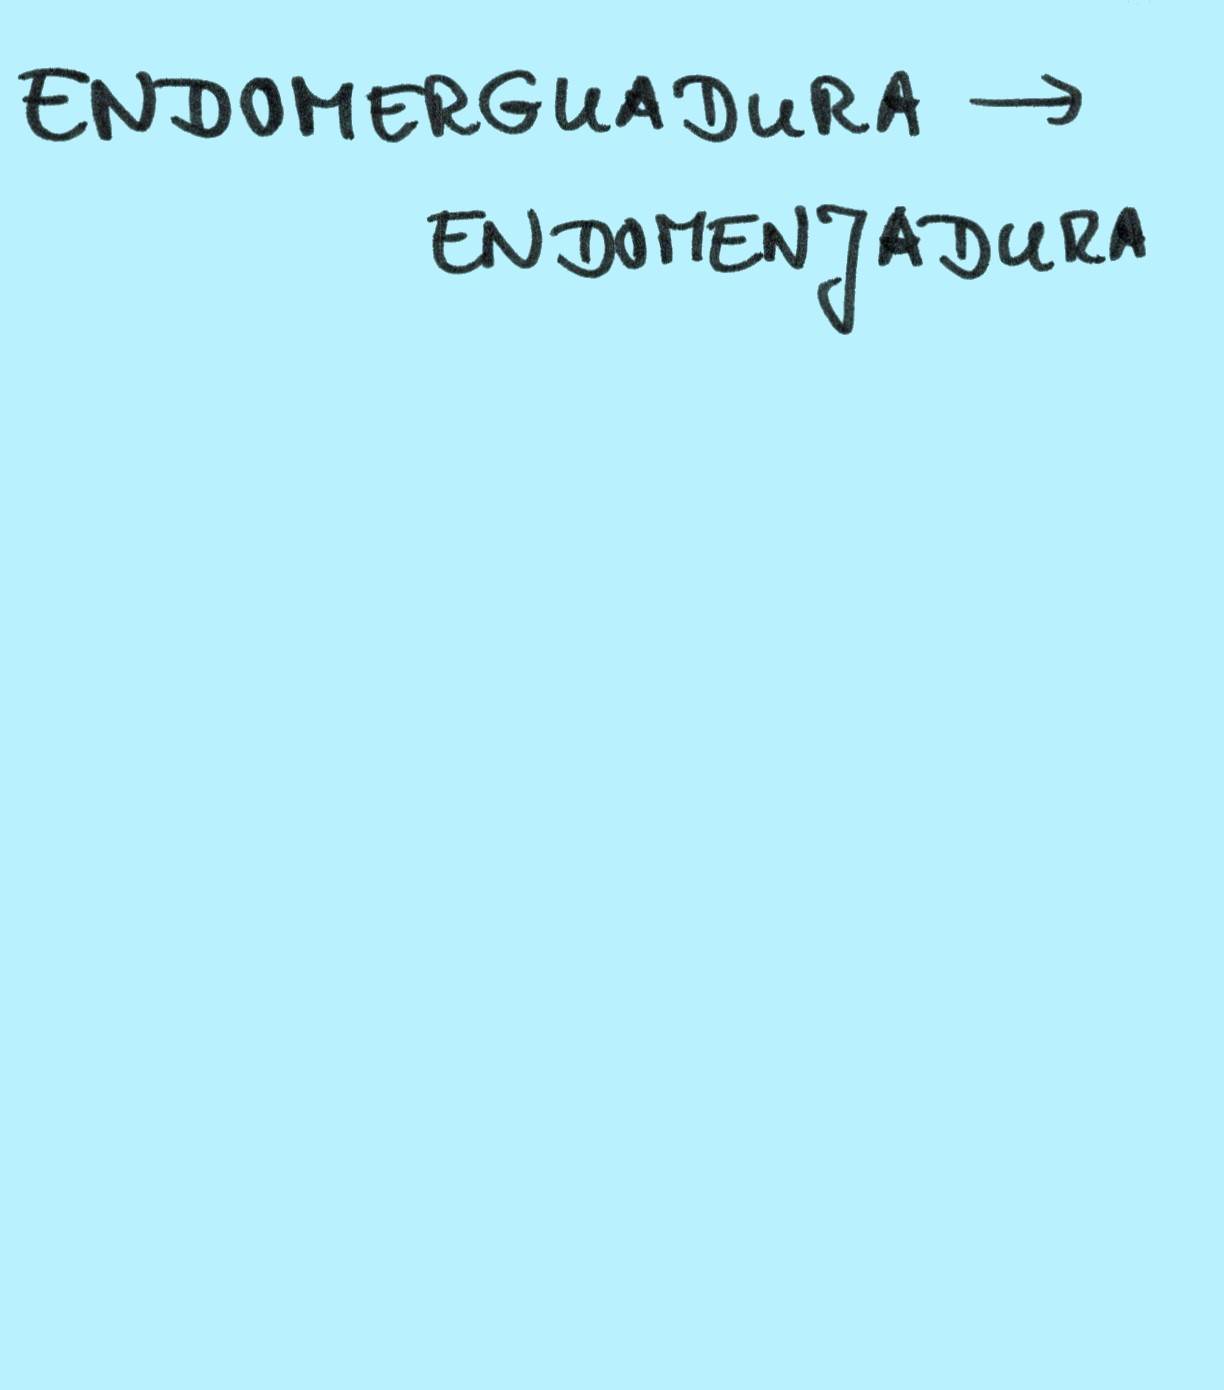 ENDOMERGUADURA →
ENDOMENJADURA